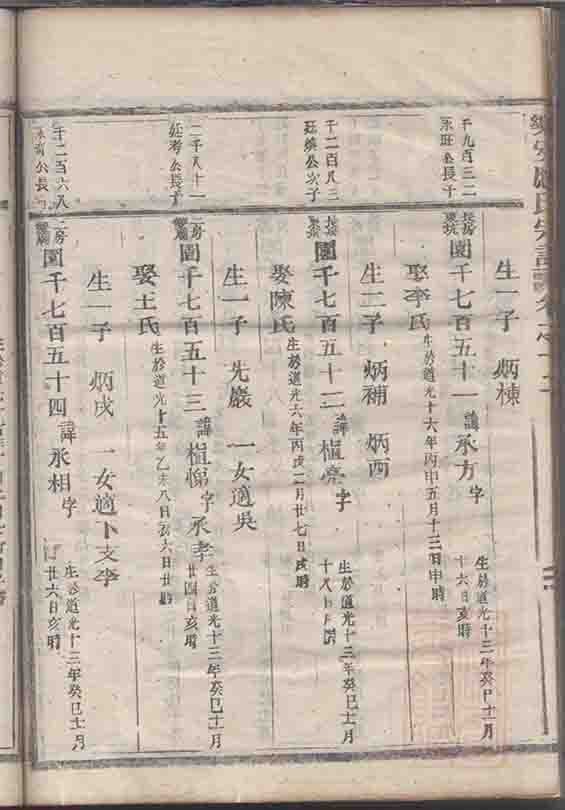 生一子 炳棟
千九百三二
承班公長子
長房
園千七百五十一 諱承方 字
生於道光十三年癸巳十一月
十六日亥時
娶李氏 生於道光十六年丙申五月十三日申時
生二子 炳補 炳西
千二百八三
廷煥公次子
長房
園千七百五十二 諱植亮 字
生於道光十三年癸巳十一月
十八日 時
娶陳氏 生於道光六年丙戌二月廿七日亥時
生一子 先嚴 一女適吳
二千八十一
廷考公長子
二房
園千七百五十三 諱植悌 字承孝
生於道光十三年癸巳十一月
廿四日亥時
娶王氏 生於道光十五年乙未八日初六日廿時
生一子 炳成 一女適下支李
千二百六八
公長
二房
園千七百五十四 諱承相 字
生於道光十三年癸巳十一月
廿六日亥時